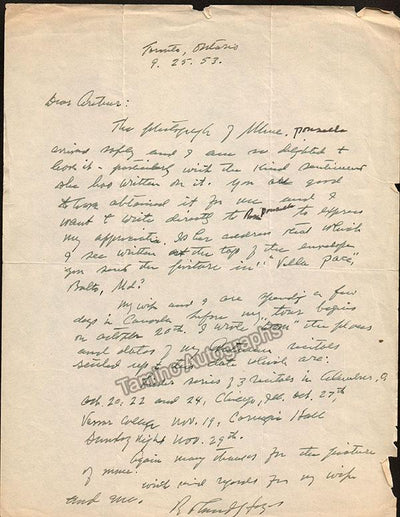 Toronto, Ontario
9. 25. 53.
Dear Arthur:
The photograph of Mme. Ponselle
arrived safely and I am so delighted to
have it - particularly with the kind sentiment
she has written on it. You are good
to have obtained it for me and I
want to write directly to Rosa Ponselle to express
my appreciation. Is her address that which
I see written at the top of the envelope
you sent the picture in: "Villa Pace",
Balto, Md?
My wife and I are spending a few
days in Canada before my tour begins
on October 20th. I wrote the places
and dates of my recitals
up to date which are:
series of 3 recitals in Columbus, O
Oct. 20, 22 and 24, Chicago, Ill. Oct. 27th
Vassar College Nov. 19, Carnegie Hall
Sunday Night Nov. 29th.
Again many thanks for the picture
of mme.
With kind regards for my wife
and me.
Roland Hayes
Tamino Autographs